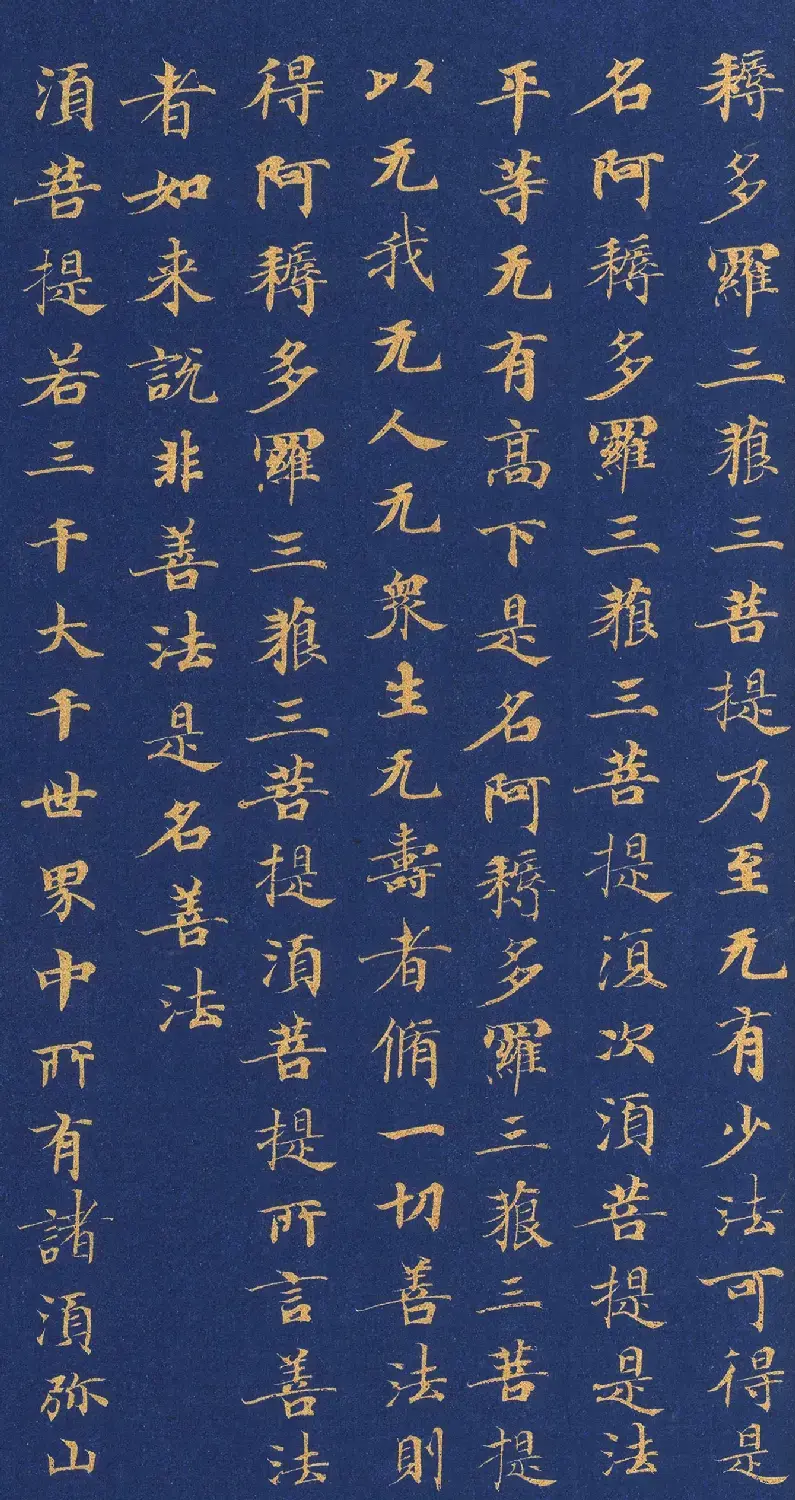 耨多羅三藐三菩提乃至无有少法可得是
名阿耨多羅三藐三菩提復次須菩提是法
平等无有高下是名阿耨多羅三藐三菩提
以无我无人无眾生无壽者脩一切善法則
得阿耨多羅三藐三菩提須菩提所言善法
者如来說非善法是名善法
須菩提若三千大千世界中所有諸須弥山